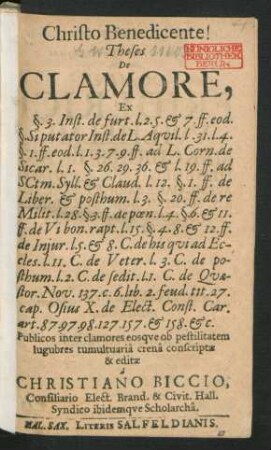 Christo Benedicente!
Theses
De
CLAMORE,
Ex
§. 3. Inst. de furt. l. 2. 5. & 7. ff. eod.
§. Si putator Inst. de L. Aqvil. l. 31. l. 4.
§. 1. ff. eod. l. 1. 3. 7. 9. ff. ad L. Corn. de
Sicar. l. 1. §. 26. 29. 36. & l. 19. ff. ad
SCtm. Syll. & Claud. l. 12. §. 1. ff. de
Liber. & posthum. l. 3. §. 20. ff. de re
Milit. l. 28. §. 3. ff. de pœn. l. 4. §. 6. & 11.
ff. de Vi bon. rapt. l. 15. §. 4. 8. & 12. ff.
de Injur. l. 5. & 8. C. de his qvi ad Ec-
cles. l. 11. C. de Veter. l. 3. C. de po-
sthum. l. 2. C. de sedit. l. 1. C. de Qvæ-
stor. Nov. 137. c. 6. lib. 2. feud. tit. 27.
cap. Osius X. de Elect. Const. Car.
art. 87. 97. 98. 127. 157. & 158. &c.
Publicos inter clamores eosqve ob pestilitatem
lugubres tumultuariâ crenâ conscriptæ
& editæ
á
CHRISTIANO BICCIO,
Consiliario Elect. Brand. & Civit. Hall.
Syndico ibidemqve Scholarchâ.
HAL. SAX. LITERIS SALFELDIANIS.
KÖNIGLICHE
BIBLIOTHEK
BERLIN